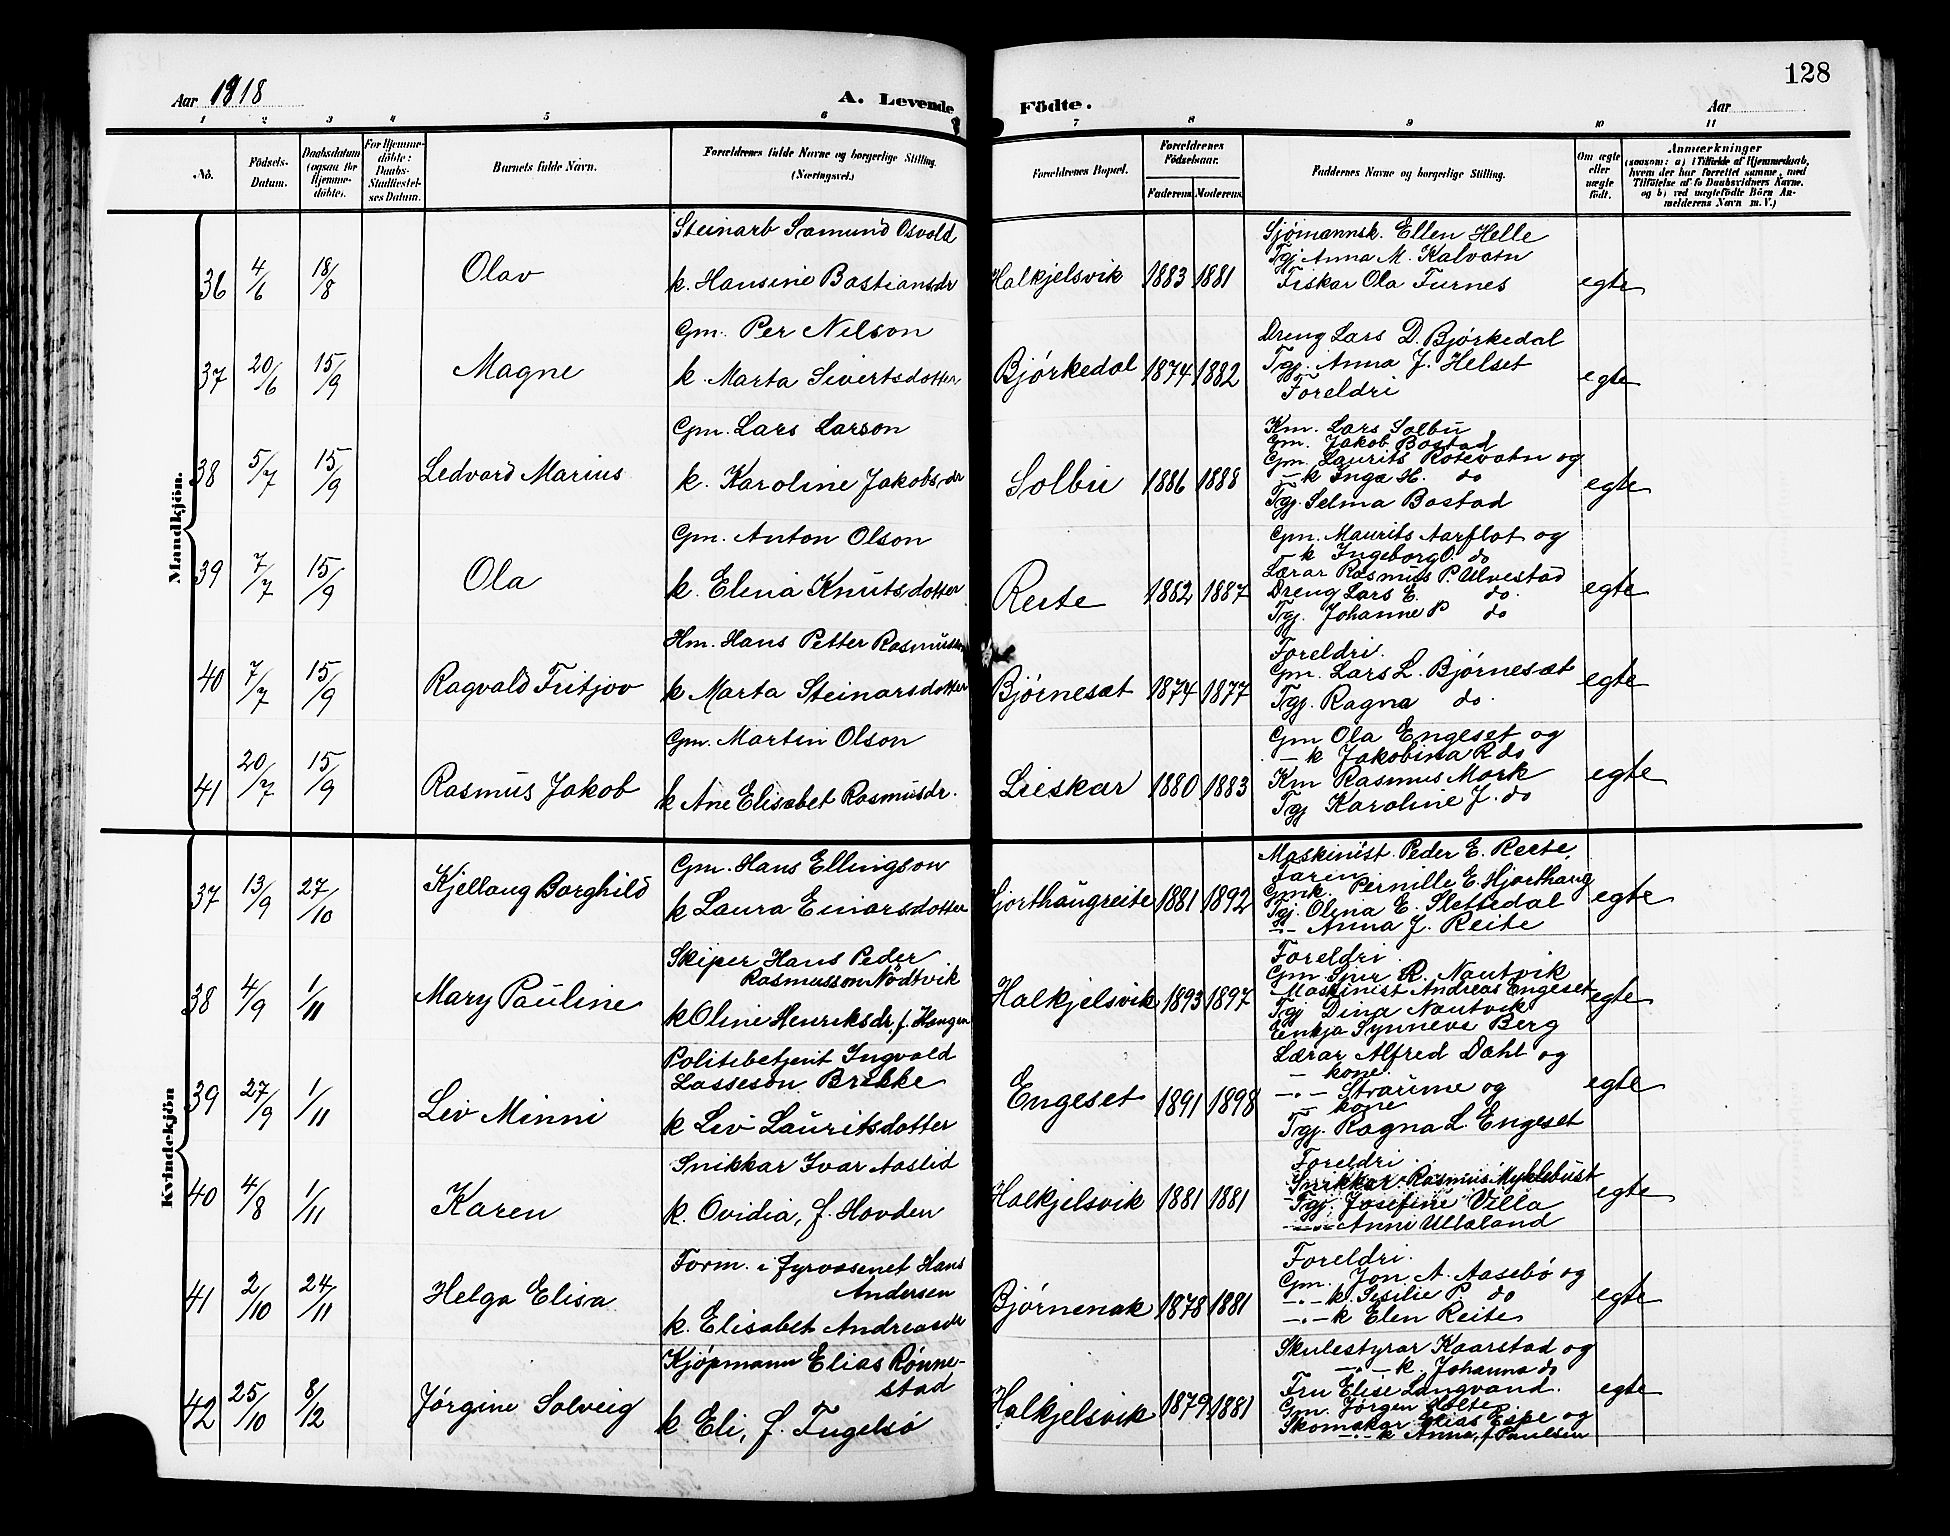 128
Aar 1918 A. Levende Födte. Aar
1 2 3 4 5 6 7 8 9 10 11
No. Födsels-Datum. Daabsdatum (ogsaa for Hjemme-döbte). For Hjemme-döbte: Daabs-Stadfæstel-ses Datum. Barnets fulde Navn. Forældrenes fulde Navne og borgerlige Stilling. (Næringsvei.) Forældrenes Bopæl. Forældrenes Födselsaar. Faderens Moderens Faddernes Navne og borgerlige Stilling. Om ægte eller uægte födt. Anmærkninger (saasom: a) i Tilfælde af Hjemmedaab, hvem der har forrettet samme, med Tilföielse af to Daabsvidners Navne. og b) ved uægtefödte Börn An-melderens Navn m. V.)
Mandkjön.
36 4/6 18/8 Olav
Steinarb Samund Osvold
k. Hansine Bastiansdr
Halkjelsvik 1883 1881
Sjömannsk. Ellen Helle
Tgj Anna M. Kalvatn
Fiskar Ola Furnes
egte
37 20/6 15/9 Magne
Gm. Per Nilson
k. Marta Sivertsdotter
Bjørkedal 1874 1882
Dreng Lars D. Bjørkedal
Tgj. Anna J. Helset
Foreldri
egte
38 5/7 15/9 Ledvard Marius
Gm. Lars Larson
k. Karoline Jakobsdr
Solbu 1886 1888
Km. Lars Solbu
Gm. Jakob Bostad
Gm. Laurits Rotevatn og
- k Inga H. do
Tgj. Selma Bostad
egte
39 7/7 15/9 Ola
Gm. Anton Olson
k. Elena Knutsdotter
Reite 1882 1887
Gm. Maurits Aarflot og
- k Ingeborg O. do
Lærar Rasmus P. Ulvestad
Dreng Lars E. do
Tgj. Johanne P do
egte
40 7/7 15/9 Ragvald Fritjov
Hm. Hans Petter Rasmusson
k Marta Steinarsdotter
Bjørnesæt 1874 1877
Foreldri.
Gm. Lars L. Bjørnesæt
Tgj. Ragna do.
egte
41 20/7 15/9 Rasmus Jakob
Gm. Martin Olson
k Ane Elisabet Rasmusdr.
Lieskar 1880 1883
Gm Ola Engeset og
- k Jakobina R do
Km Rasmus Mork
Tgj Karoline J. do
egte
Kvindekjön
37 13/9 27/10 Kjellaug Borghild
Gm. Hans Ellingson
k Laura Einarsdotter
Hjorthaugreite 1881 1892
Maskinist Peder E. Reite,
Faren
Gmk. Pernille E. Hjorthaug
Tgj. Olina E. Slettedal
-"- Anna J. Reite
egte
38 4/9 1/11 Mary Pauline
Skiper Hans Peder
Rasmusson Nödtvik
k Oline Henriksdr, f. Haugen
Halkjelsvik 1893 1897
Foreldri.
Gm. Sjur R. Nautvik
Maskinist Andreas Engeset
Tgj Dina Nautvik
Enkja Synneve Berg
egte
39 27/9 1/11 Liv Minni
Politibetjent Ingvald
Lasseson Brekke
k Liv Lauritsdotter
Engeset 1891 1898
Lærar Alfred Dahl og
- kone.
-"- Straume og
- kone
Tgj. Ragna L. Engeset
egte
40 4/8 1/11 Karen
Snikkar Ivar Aaslid
k. Ovidia, f. Hovden
Halkjelsvik 1881 1881
Foreldri.
Snikkar Rasmus Myklebust
Tgj. Josefine Villa
-"- Anni Ullaland
egte
41 2/10 24/11 Helga Elisa
Form. i fyrvæsenet Hans
Andersen
k. Elisabet Andreasdr
Bjørnenak 1878 1881
Foreldri.
Gm. Jon A. Aasebø og
-"- k. Sesilie P. do
-"- k Elen Reite
egte
42 25/10 8/12 Jørgine Solveig
Kjøpmann Elias Rønne-
stad
k Eli, f. Fugelsø
Halkjelsvik 1879 1881
Skulestyrar Kaarstad og
-"- k. Johanna do
Fru Elise Langvand.
Gm. Jørgen Holte
Skomakar Elias Espe og
-"- k Anna, f Paulsen
egte